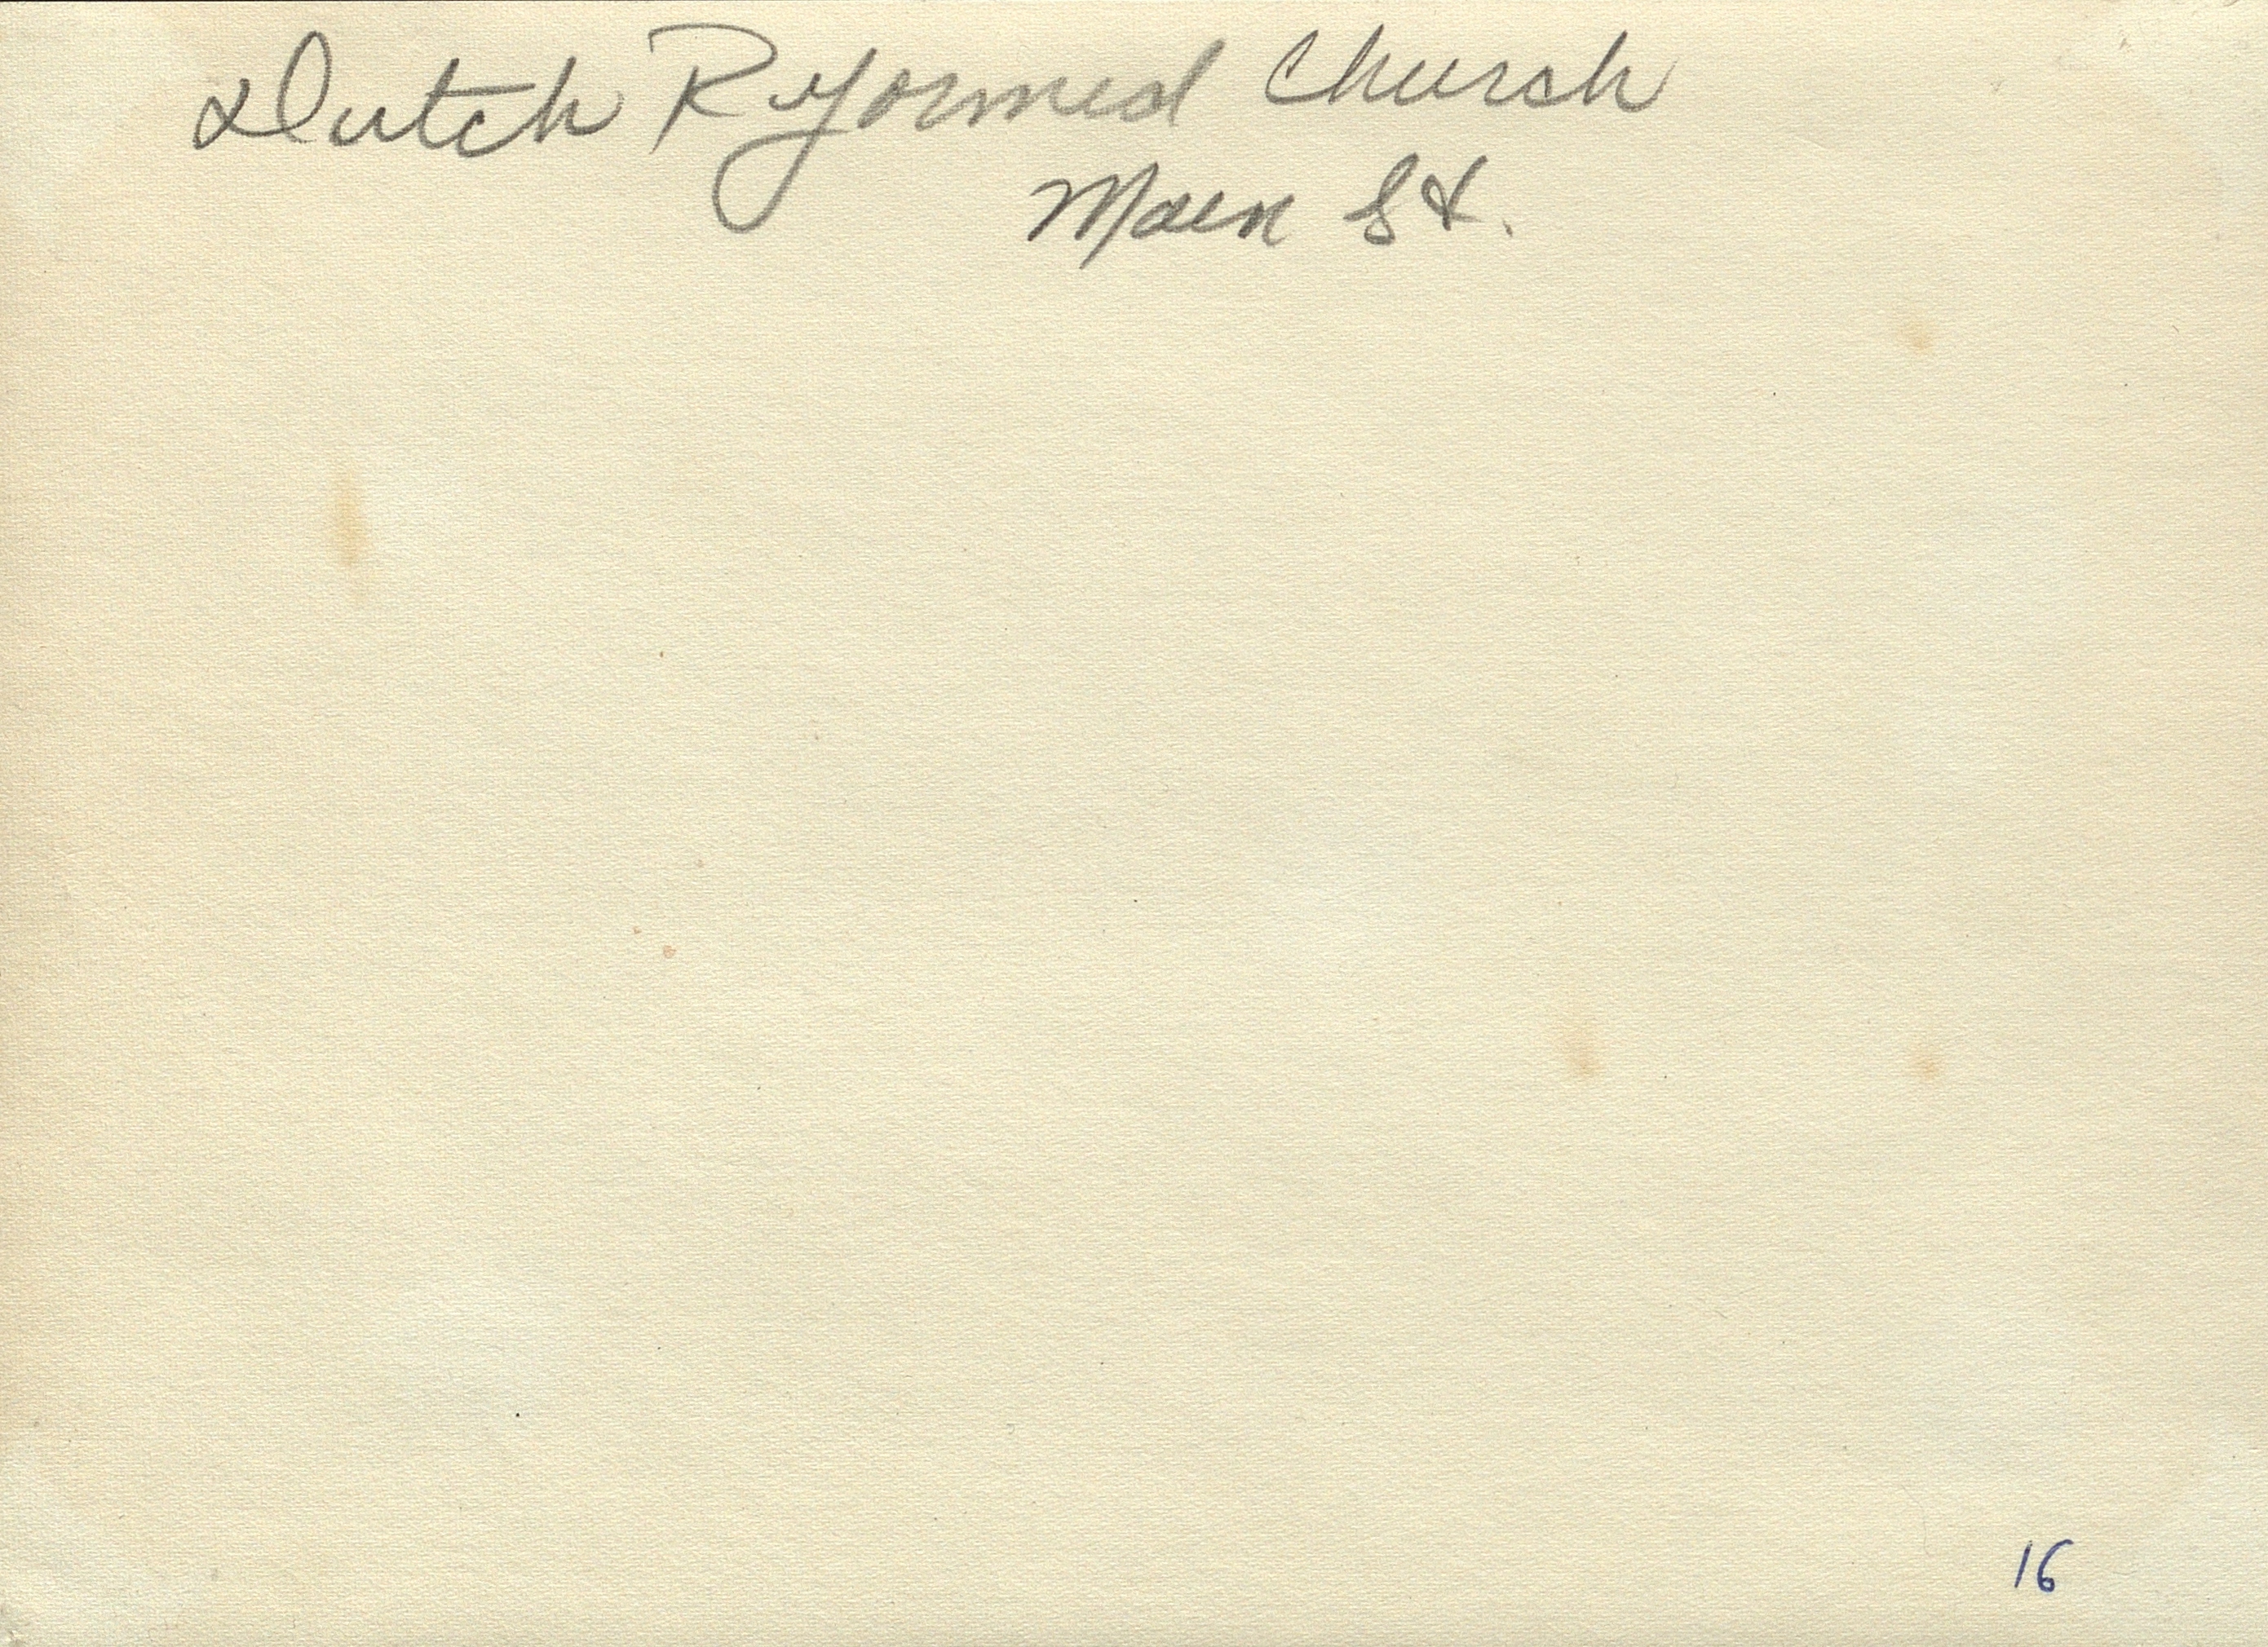 Dutch Reformed Church
Main St.
16